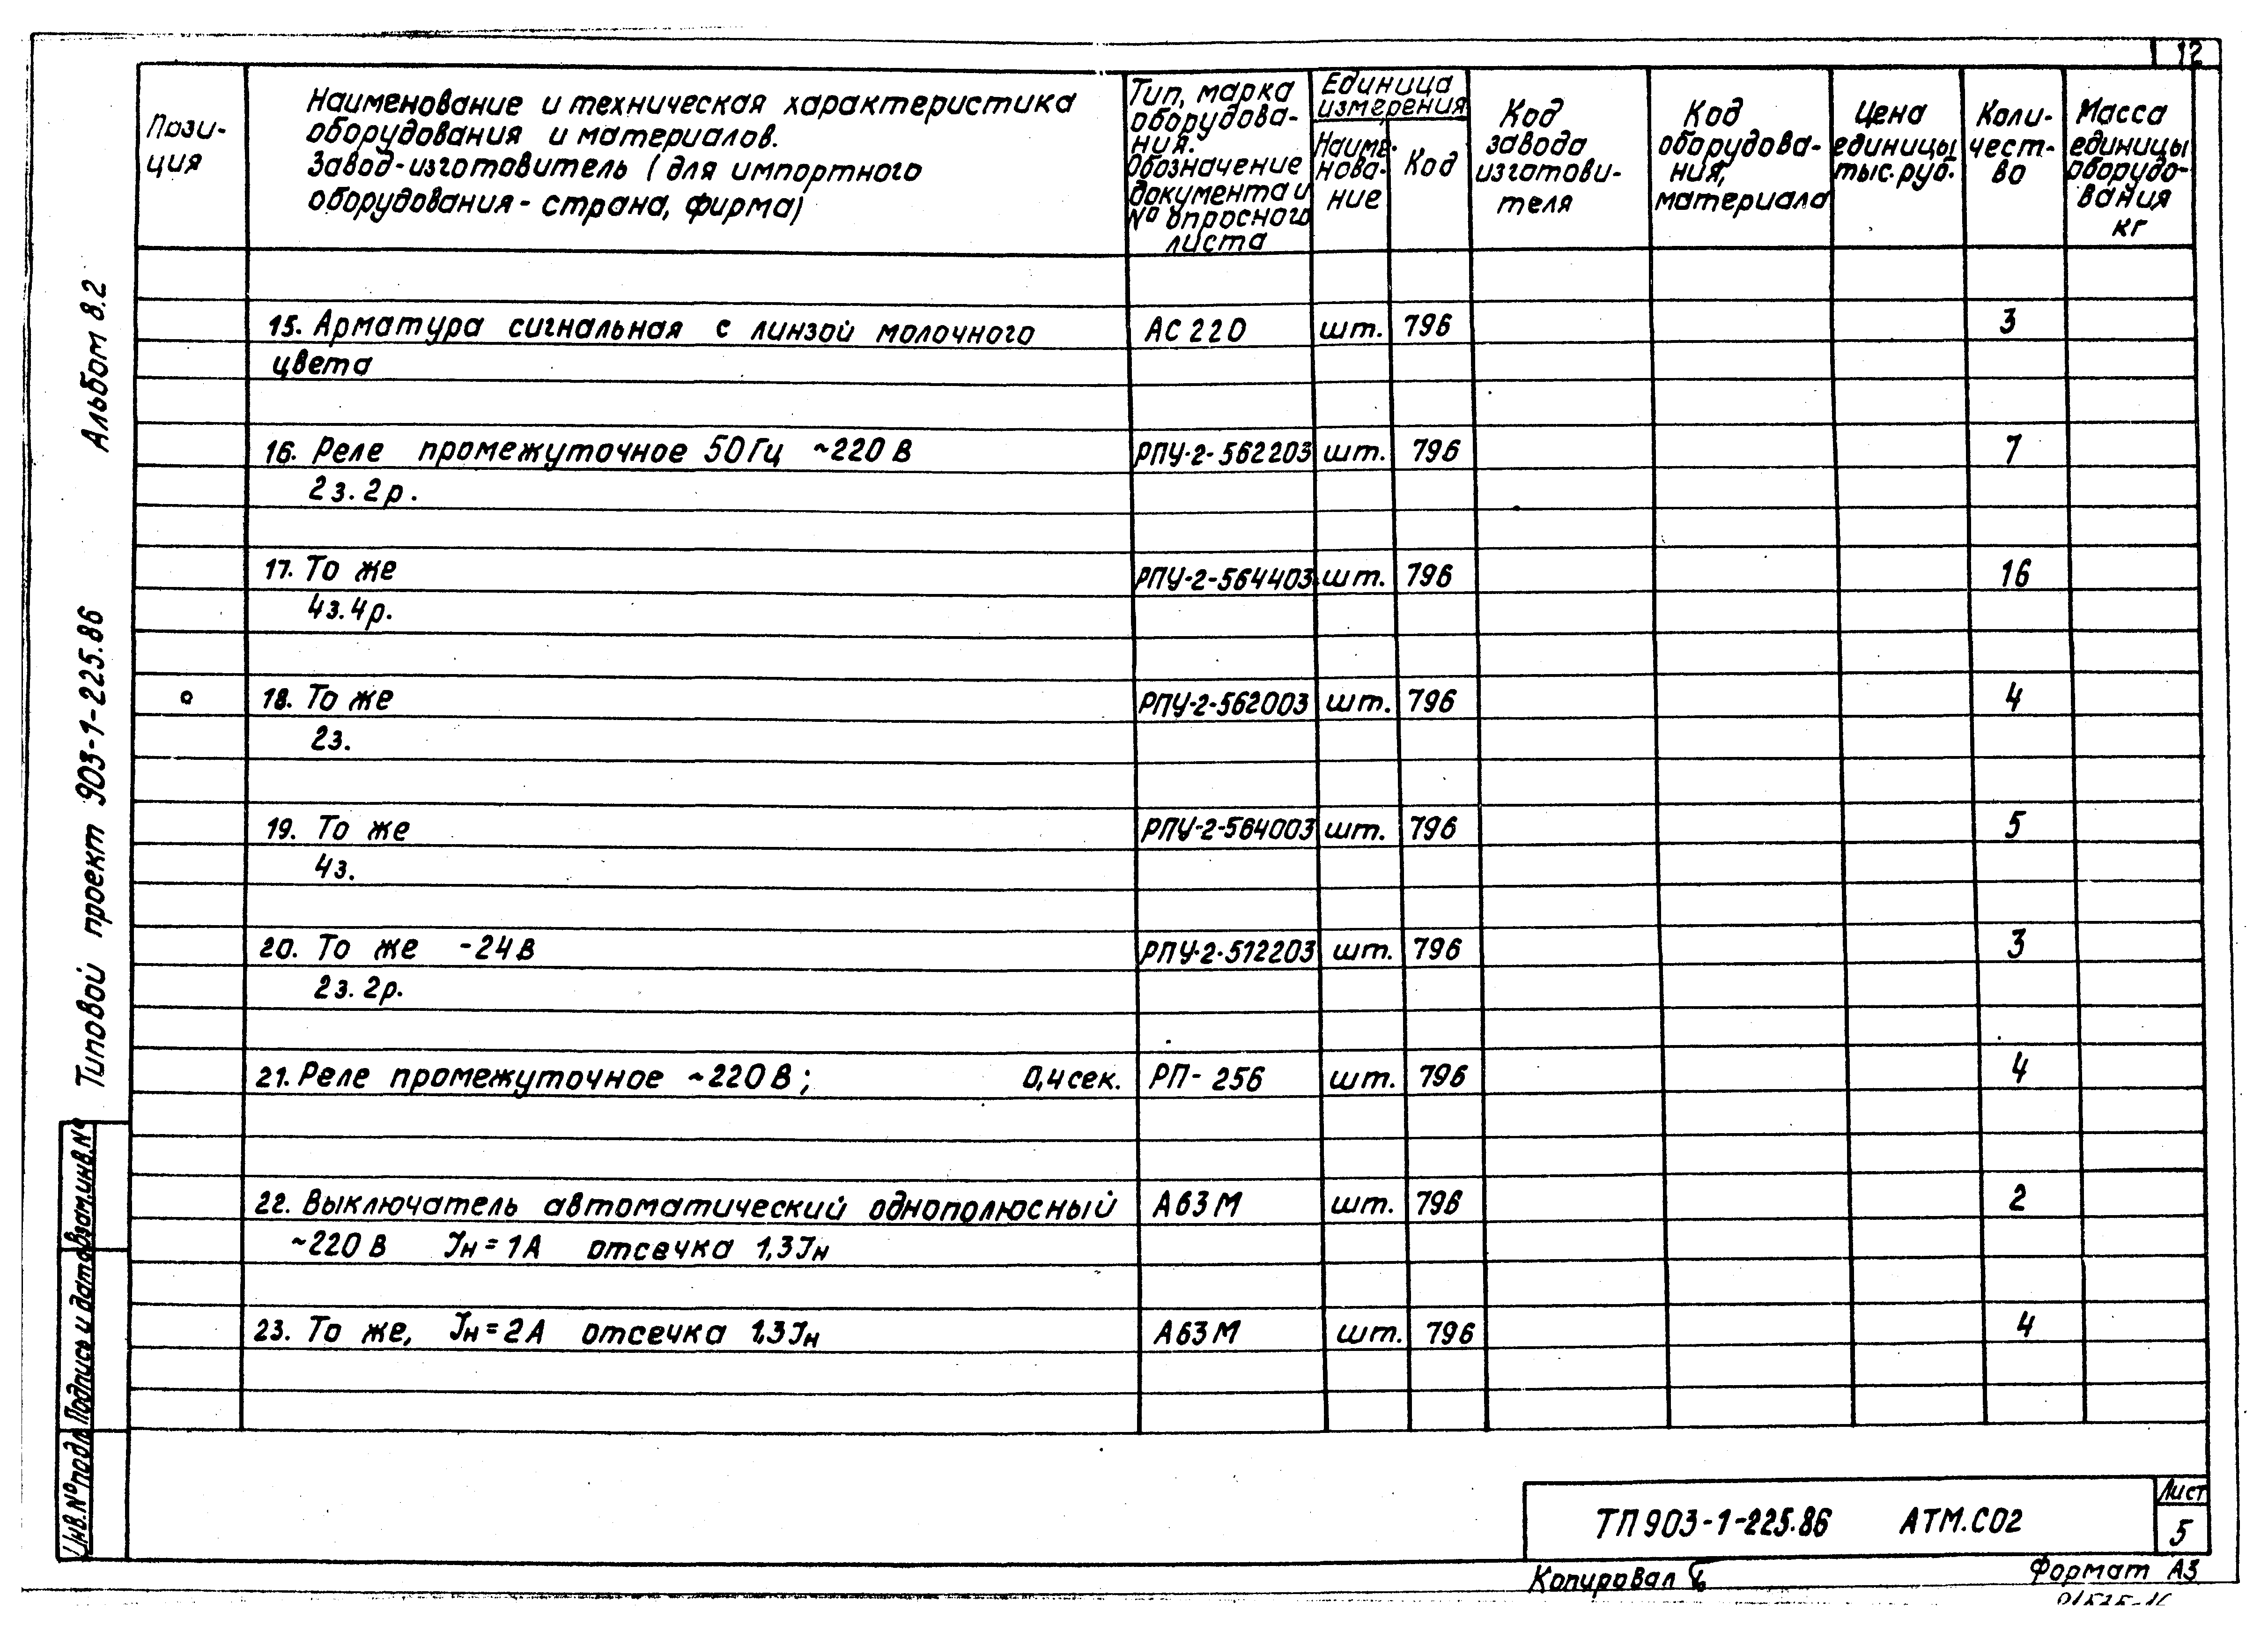 12
Пози-
ция
Наименование и техническая характеристика
оборудования и материалов.
Завод-изготовитель (для импортного
оборудования - страна, фирма)
Тип, марка
оборудова-
ния.
Обозначение
документа и
№ опросного
листа
Единица
измерения
Наиме-
нова-
ние
Код
Код
завода
изготови-
теля
Код
оборудова-
ния,
материала
Цена
единицы
тыс.руб.
Коли-
чест-
во
Масса
единицы
оборудо-
вания
кг
15. Арматура сигнальная с линзой молочного АС 220 шт. 796 3
цвета
16. Реле промежуточное 50Гц ~220 В РПУ-2-562203 шт. 796 7
2з.2р.
17. То же РПУ-2-564403 шт. 796 16
4з.4р.
18. То же РПУ-2-562003 шт. 796 4
2з.
19. То же РПУ-2-564003 шт. 796 5
4з.
20. То же -24В РПУ-2-512203 шт. 796 3
2з.2р.
21. Реле промежуточное ~220В; 0,4сек. РП-256 шт. 796 4
22. Выключатель автоматический однополюсный А63М шт. 796 2
~220 В Iн=1А отсечка 1,3Iн
23. То же, Iн=2А отсечка 1,3Iн А63М шт. 796 4
Альбом 8.2
Типовой проект 903-1-225.86
Взам.инв.№
Подпись и дата
Инв.№подл
ТП903-1-225.86 АТМ.СО2
Лист
5
Копировал
Формат А3